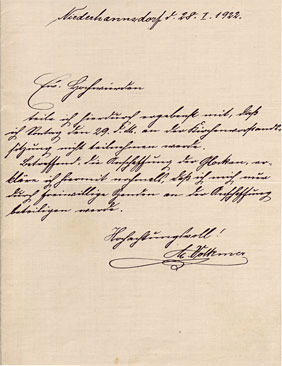 Niederhannsdorf d. 28. I. 1922.
Ew. Hochwürden
teile ich hierdurch ergebenst mit, daß
ich Sonntag den 29. d. Mts. an der Kirchenvorstands-
sitzung nicht teilnehmen werde.
Betreffend die Anschaffung der Glocken, er-
kläre ich hiermit nochmals, daß ich mich nur
durch freiwillige Spenden an der Anschaffung
beteiligen werde.
Hochachtungsvoll!
A. Volkmer